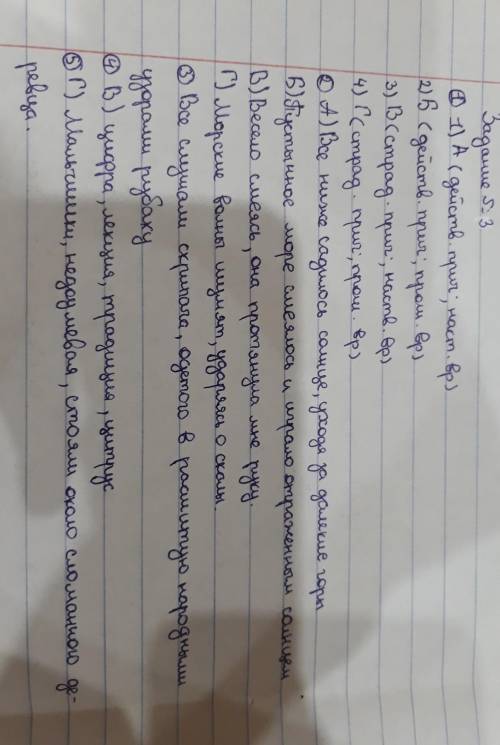 Задание №3
① 1) А (действ. прич; наст. вр)
2) Б (действ. прич; прош. вр)
3) В (страд. прич; наств. вр)
4) Г (страд. прич; прош. вр)
② А) Все ниже садилось солнце, уходя за далекие горы
Б) Пустынное море смеялось и играло отраженным солнцем
В) Весело смеясь, она протянула мне руку.
Г) Морские волны шумят, ударяясь о скалы.
③ Все слушали скрипача, одетого в расшитую народными
узорами рубаху
④ В) цифра, лекция, традиция, цитрус
⑤ Г) Мальчишки, недоумевая, стояли около сломанного де-
ревца.